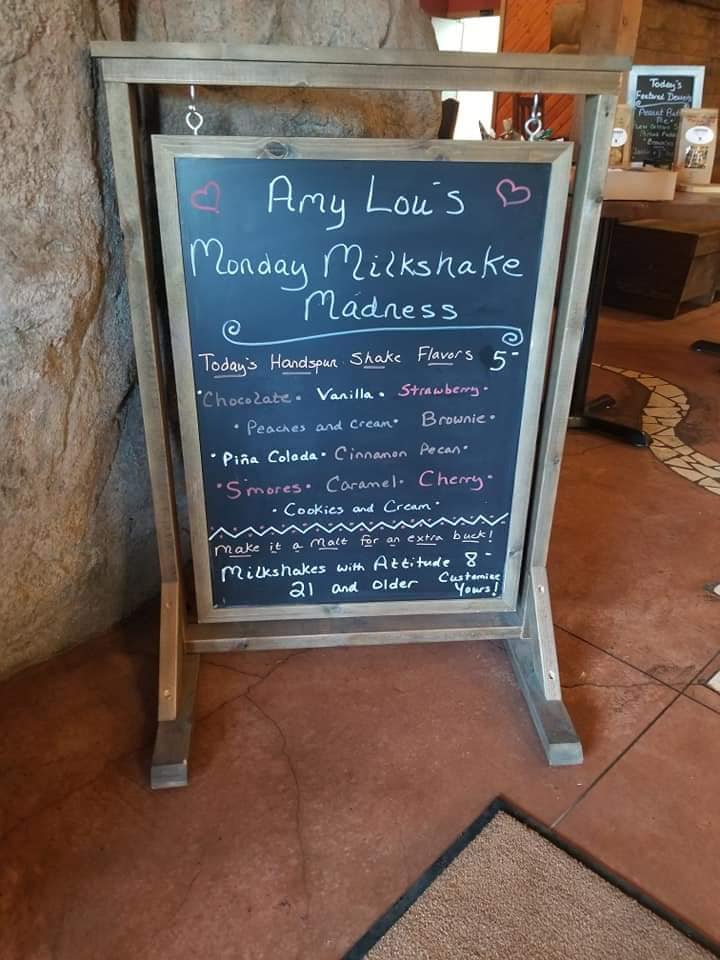 Amy Lou's
Monday Milkshake
Madness
Today's Handspun Shake Flavors 5-
•Chocolate• Vanilla• Strawberry•
•Peaches and Cream• Brownie•
•Piña Colada• Cinnamon Pecan•
•S'mores• Caramel• Cherry•
•Cookies and Cream•
make it a malt for an extra buck!
Milkshakes with Attitude 8-
21 and older Customize
Yours!
Today's
Featured
Peanut
Pie